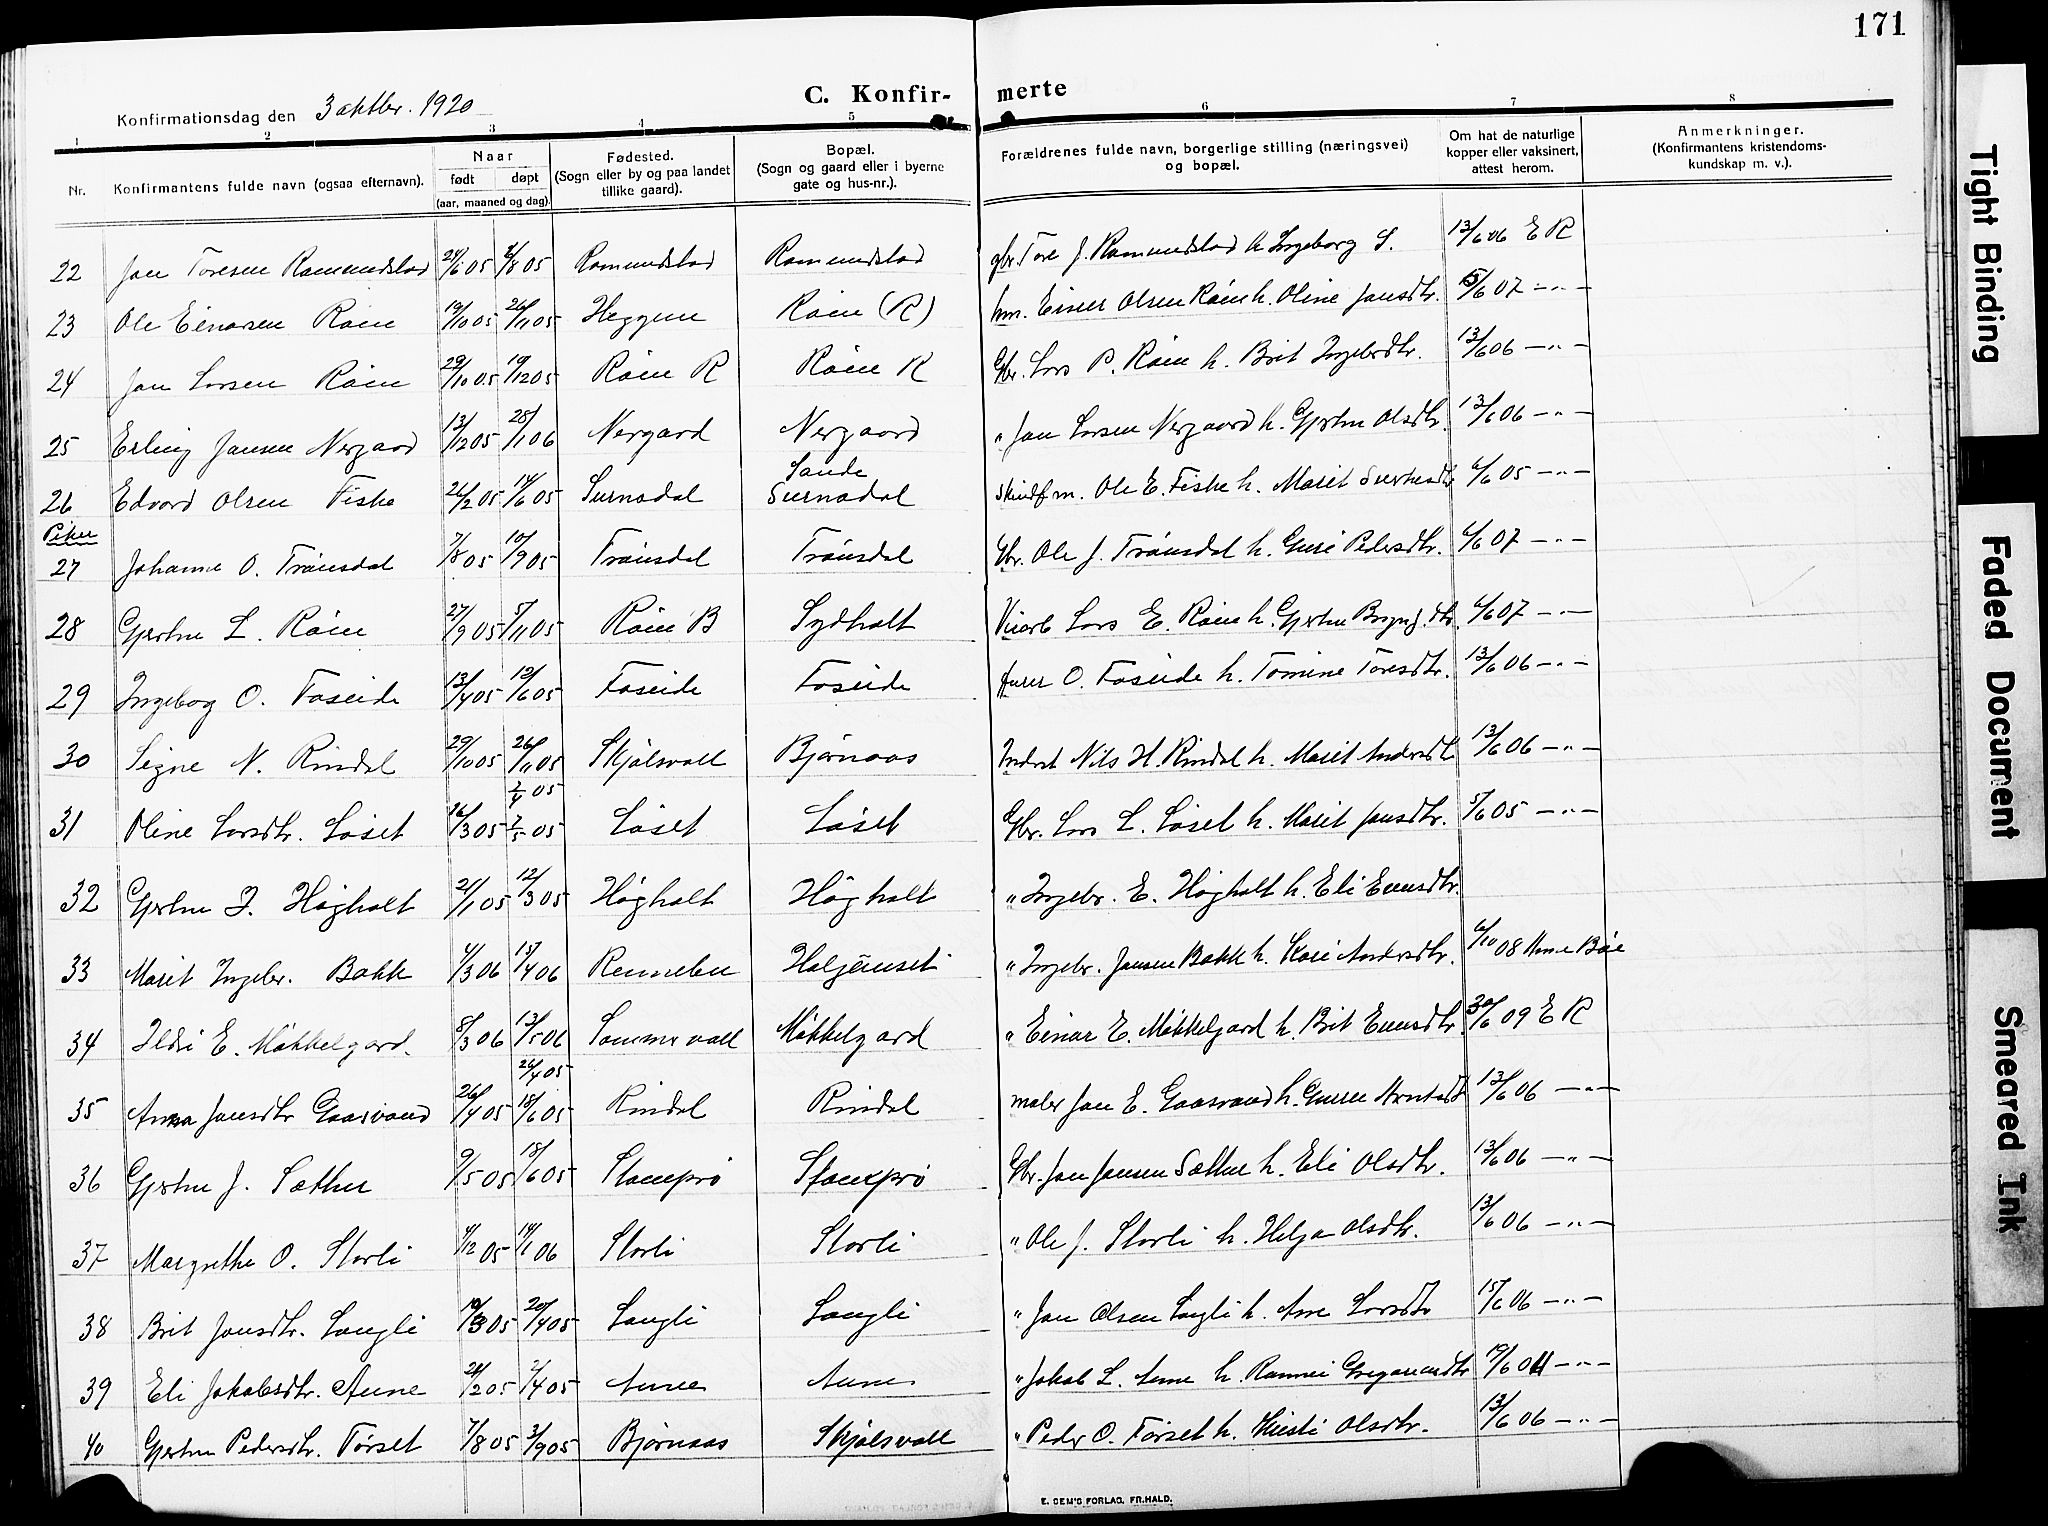 171
C. Konfir-merte
Konfirmationsdag den 3 oktbr. 1920
1 2 3 4 5 6 7 8
Nr. Konfirmantens fulde navn (ogsaa efternavn). Naar født døpt (aar, maaned og dag). Fødested. (Sogn eller by og paa landet tillike gaard). Bopæl. (Sogn og gaard eller i byerne gate og hus-nr.). Forældrenes fulde navn, borgerlige stilling (næringsvei) og bopæl. Om hat de naturlige kopper eller vaksinert, attest herom. Anmerkninger. (Konfirmantens kristendoms-kundskap m. v.).
22 Jon Toresen Romundstad 24/6 05 6/8 05 Romundstad Romundstad gbr. Tore J. Romundstad h. Ingeborg L. 13/6 06 E R
23 Ole Einarsen Røen 19/10 05 26/11 05 Heggem Røen (R) hm. Einar Olsen Røen h. Oline Jonsdtr. 5/6 07 -"-
24 Jon Larsen Røen 29/10 05 19/12 05 Røen R Røen R Gbr. Lars P. Røen h. Brit Ingebrdtr. 13/6 06 -"-
25 Erling Jonsen Nergaard 13/12 05 28/1 06 Nergard Nergaard " Jon Larsen Nergaard h. Gjertru Olsdtr. 13/6 06 -"-
26 Edvard Olsen Fiske 26/2 05 14/6 05 Surnadal Sande Surnadal skindfm. Ole E. Fiske h. Marit 6/6 05 -"-
Piker
27 Johanne O. Trønsdal 7/8 05 10/9 05 Trønsdal Trønsdal Gbr. Ole J. Trønsdal h. Guri Pedersdtr. 6/6 07 -"-
28 Gjertru L. Røen 27/9 05 5/11 05 Røen B Sydhalt Lars E. Røen h. Gjertru Brynj.dtr. 6/6 07 -"-
29 Ingebog O. Foseide 13/4 05 12/6 05 Foseide Foseide O. Foseide h. Tomine Toresdtr. 13/6 06 -"-
30 Signe N. Rindal 29/10 05 26/11 05 Skjølsvoll Bjørnaas Indrst Nils H. Rindal h. Marit Andersdtr 13/6 06 -"-
31 Oline Larsdtr. Løset 16/3 05 2/4 05 7/5 05 Løset Løset Gbr. Lars L. Løset h. Marit Jonsdtr. 5/6 05 -"-
32 Gjertru I. Høgholt 21/1 05 12/3 05 Høgholt Høgholt " Ingebr. E. Høgholt h. Eli Evensdtr.
33 Marit Ingebr. Bakk 4/3 06 15/4 06 Rennebu Haljemset " Ingebr. Jonsen Bakk h. Kari Andersdtr. 6/10 08 Arne Bøe
34 Ildri E. Møkkelgard. 8/3 06 13/5 06 Sommervoll Møkkelgard " Einar E. Møkkelgard h. Brit Evensdtr. 30/6 09 E R
35 Anna Jonsdtr Gaasvand 26/4 05 26/4 05 18/6 05 Rindal Rindal maler Jon E. Gaasvand h. Guren Arntsdt 13/6 06 -"-
36 Gjertru J. Sæther 9/5 05 18/6 05 Stomprø Stomprø Gbr. Jon Jonsen Sæther h. Eli Olsdtr. 13/6 06 -"-
37 Margrethe O. Storli 4/12 05 14/1 06 Storli Storli " Ole J. Storli h. Helga Olsdtr. 13/6 06 -"-
38 Brit Jonsdtr. Langli 19/3 05 20/4 05 Langli Langli " Jon Olsen Langli h. Ane Larsdtr 15/6 06 -"-
39 Eli Jakobsdtr. Aune 21/2 05 2/4 05 Aune Aune " Jakob L. Aune h. Rannei 19/6 011 -"-
40 Gjertru Pedersdtr. Førset 7/8 05 3/9 05 Bjørnaas Skjølsvoll " Peder O. Førset h. Kirsti Olsdtr. 13/6 06 -"-
E. SEM'S FORLAG, FR.HALD.
Tight Binding
Faded Document
Smeared Ink